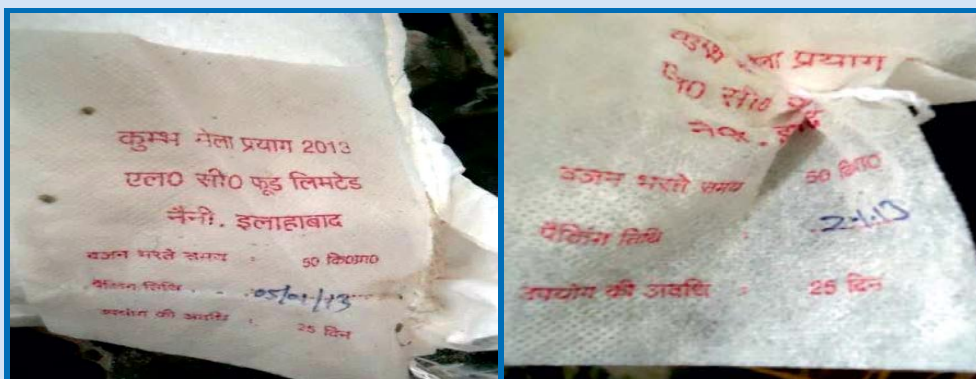 कुम्भ मेला प्रयाग 2013
एल0 सी0 फूड लिमटेड
नैनी. इलाहाबाद
वजन भरते समय : 50 कि0ग्रा0
पैकिंग तिथि : 05/01/13
उपयोग की अवधि : 25 दिन
कुम्भ मेला प्रयाग
एल0 सी0 फूड
वजन भरते समय 50 कि0ग्रा0
पैकिंग तिथि :
उपयोग की अवधि : 25 दिन